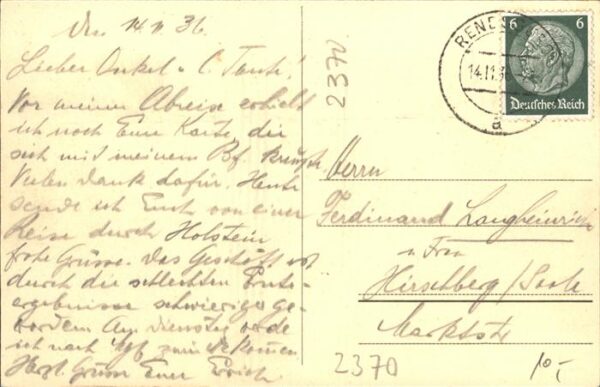 Den 14.11.36
Lieber Onkel u. l. Tante!
Vor meiner Abreise erhielt
ich noch Eure Karte, die
sich mit meinem Bf. kreuzte.
Vielen Dank dafür. Heute
sende ich Euch von einer
Reise durch Holstein
frohe Grüsse. Das Geschäft ist
durch die schlechten Ernte-
ergebnisse schwieriger ge-
worden. Am Dienstag werde
ich nach zurückkommen
Herzl. Grüsse Euer Erich
2370
RENDSBURG
14.11.36
a
6 6
Deutsches Reich
Herrn
Ferdinand Langheinrich
u. Frau
Hirschberg/Saale
Marktstr
2370
10,-